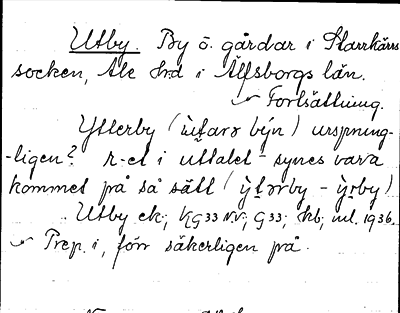 Utby. By ö. gårdar i Starrkärrs
socken, Ale Hrd i Älfsborgs län.
Fortsättning.
Ytterby (ỳtarə býn) urspring-
-ligen? r-et i uttalet synes vara
kommet på så sätt (ỳtərby - ỳrby)
Utby ek; KG33 N.V; G33; kb; ml. 1936.
Prep. i, förr säkerligen på.